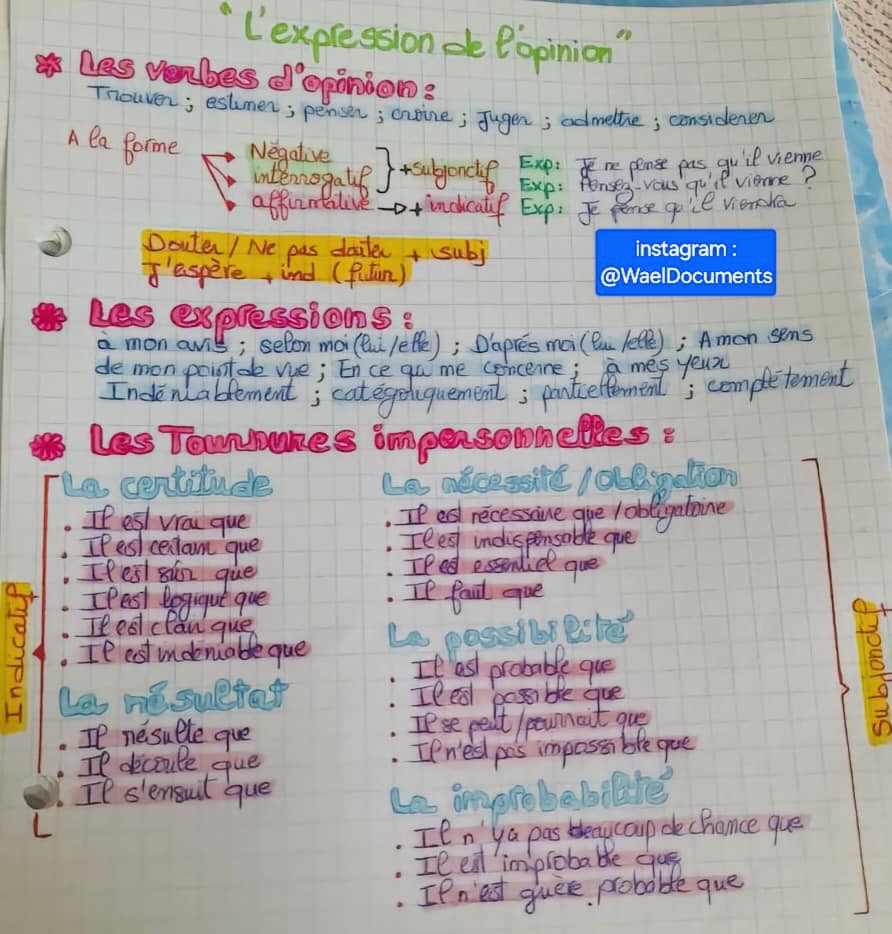 "L'expression de l'opinion"
* Les verbes d'opinion :
Trouver ; estimer ; penser ; croire ; Juger ; admettre ; considerer
A la forme
Négative
interrogatif
} +subjonctif
affirmative → + indicatif
Exp: Je ne pense pas qu'il vienne
Exp: Pensez-vous qu'il vienne ?
Exp: Je pense qu'il viendra
Douter / Ne pas douter + subj
J'espère + ind (futur)
instagram :
@WaelDocuments
* Les expressions :
à mon avis ; selon moi (lui/elle) ; D'aprés moi (lui/elle) ; A mon sens
de mon point de vue ; En ce qui me concerne ; à mes yeux
Indéniablement ; catégoriquement ; partiellement ; complètement
* Les Tournures impersonnelles :
Indicatif
La certitude
. Il est vrai que
. Il est certain que
. Il est sûr que
. Il est logique que
. Il est clair que
. Il est indéniable que
La résultat
. Il résulte que
. Il découle que
. Il s'ensuit que
La nécessité / obligation
. Il est nécessaire que / obligatoire
. Il est indispensable que
. Il est essentiel que
. Il faut que
La possibilité
. Il est probable que
. Il est possible que
. Il se peut / pourrait que
. Il n'est pas impossible que
La improbabilité
. Il n'ya pas beaucoup de chance que
. Il est improbable que
. Il n'est guère probable que
Subjonctif